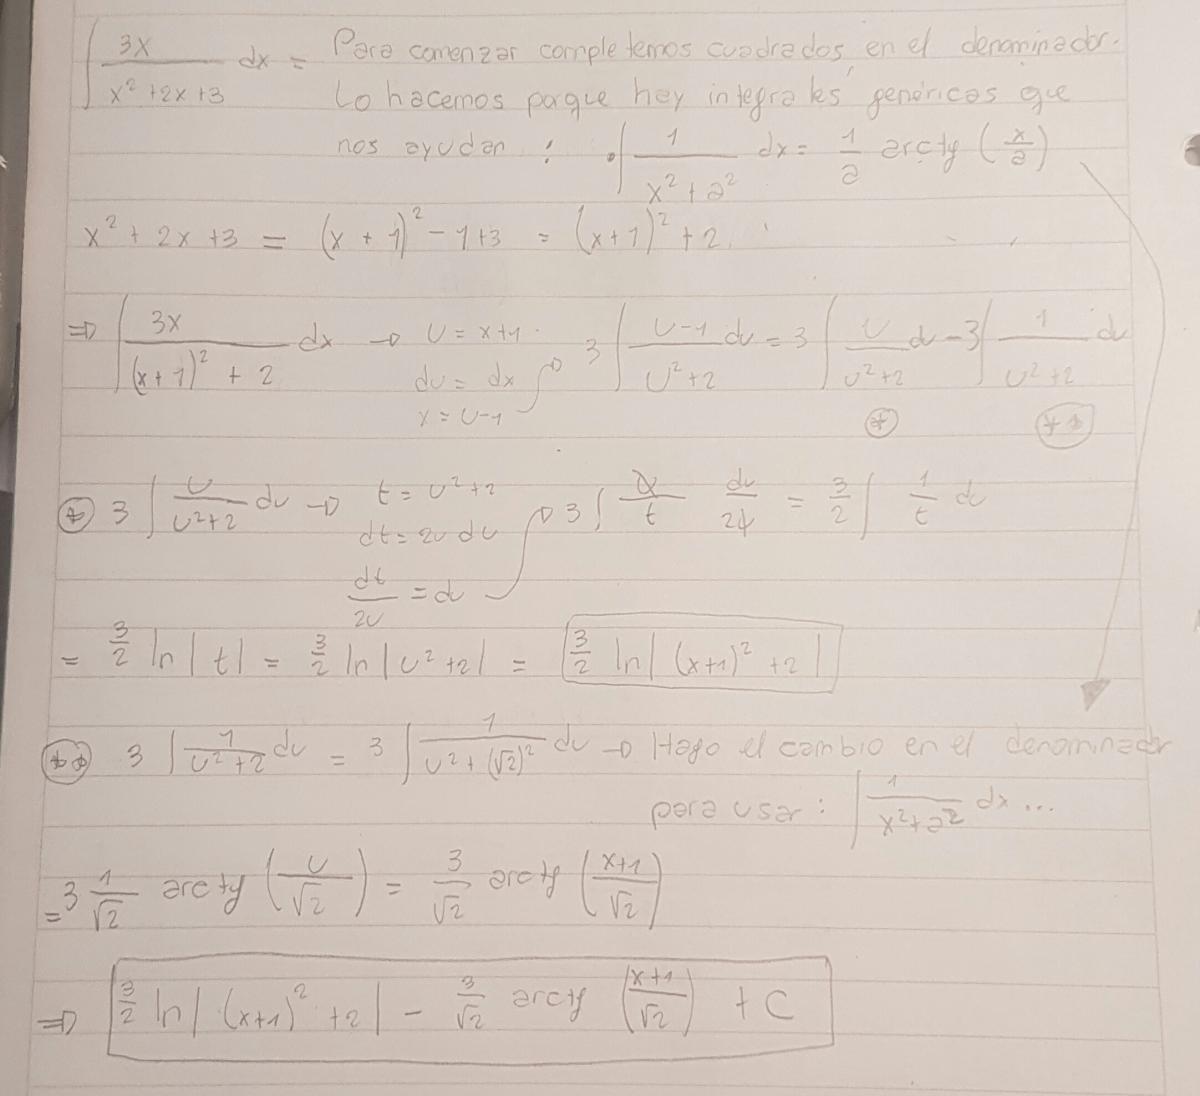 ∫ 3x / (x² + 2x + 3) dx = Para comenzar completemos cuadrados en el denominador.
Lo hacemos porque hay integrales genéricas que
nos ayudan : • ∫ 1 / (x² + a²) dx = 1/a arctg (x/a)
x² + 2x + 3 = (x + 1)² - 1 + 3 = (x+1)² + 2
⇒ ∫ 3x / ((x+1)² + 2) dx → u = x+1
du = dx
x = u-1
3 ∫ (u-1) / (u²+2) du = 3 ∫ u / (u²+2) du - 3 ∫ 1 / (u²+2) du
(*) (**)
(*) 3 ∫ u / (u²+2) du → t = u²+2
dt = 2u du
dt/2u = du
→ 3 ∫ u/t du/2u = 3/2 ∫ 1/t du
= 3/2 ln|t| = 3/2 ln|u²+2| = 3/2 ln|(x+1)² + 2|
(**) 3 ∫ 1 / (u²+2) du = 3 ∫ 1 / (u² + (√2)²) du → Hago el cambio en el denominador
para usar : ∫ 1 / (x²+a²) dx ...
= 3 1/√2 arctg (u/√2) = 3/√2 arctg ((x+1)/√2)
⇒ 3/2 ln|(x+1)² + 2| - 3/√2 arctg ((x+1)/√2) + C